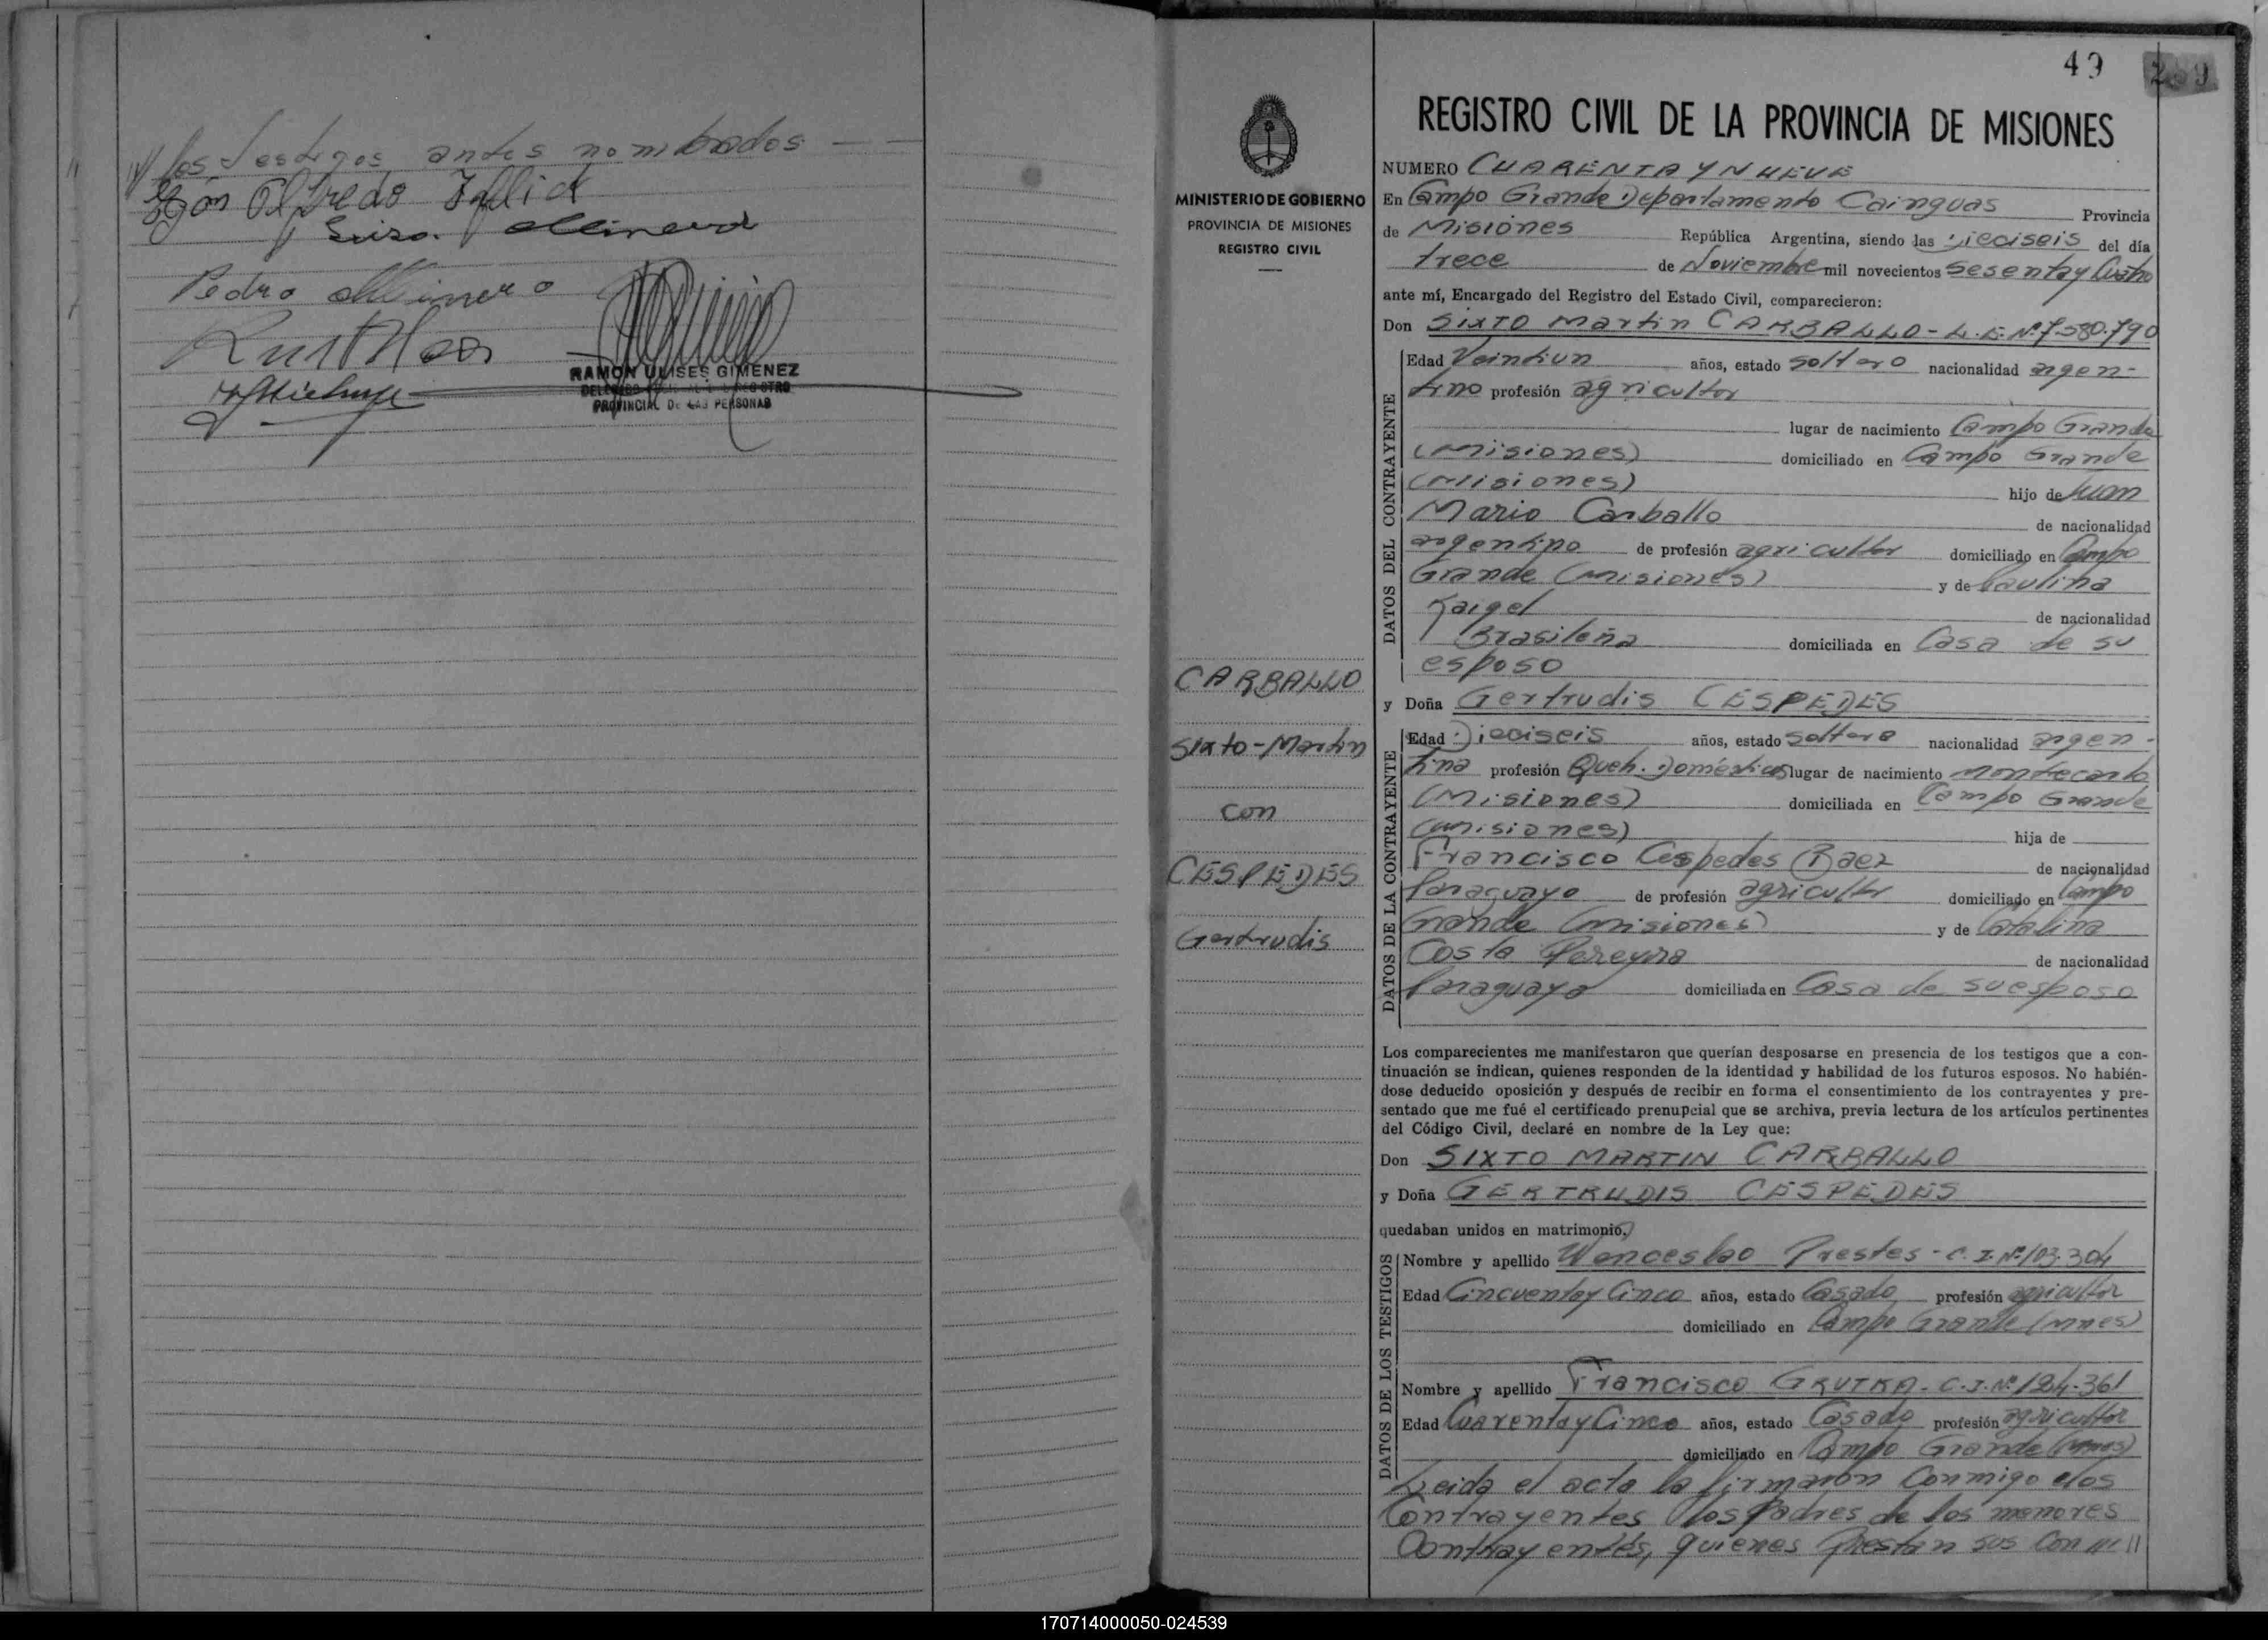 los testigos antes nombrados
Egon Alfredo
Luisa
Pedro
RAMON ULISES GIMENEZ
PROVINCIAL DE LAS PERSONAS
49
MINISTERIO DE GOBIERNO
PROVINCIA DE MISIONES
REGISTRO CIVIL
CARBALLO
Sixto-Martin
con
CESPEDES
Gertrudis
REGISTRO CIVIL DE LA PROVINCIA DE MISIONES
NUMERO CUARENTA Y NUEVE
En Campo Grande Departamento Cainguas Provincia
de Misiones República Argentina, siendo las Dieciseis del día
trece de Noviembre mil novecientos Sesenta y Cuatro
ante mí, Encargado del Registro del Estado Civil, comparecieron:
Don Sixto Martin CARBALLO - L.E. Nº 7.580.790
DATOS DEL CONTRAYENTE
Edad Veintiun años, estado soltero nacionalidad argen-
tino profesión agricultor
lugar de nacimiento Campo Grande
(Misiones) domiciliado en Campo Grande
(Misiones) hijo de Juan
Mario Carballo de nacionalidad
argentino de profesión agricultor domiciliado en Campo
Grande (Misiones) y de Paulina
Kaigel de nacionalidad
Brasileña domiciliada en Casa de su
esposo
y Doña Gertrudis CESPEDES
DATOS DE LA CONTRAYENTE
Edad Dieciseis años, estado soltera nacionalidad argen-
tina profesión Queh. Domésticos lugar de nacimiento Montecarlo
(Misiones) domiciliada en Campo Grande
(Misiones) hija de
Francisco Cespedes Baez de nacionalidad
Paraguayo de profesión agricultor domiciliado en Campo
Grande (Misiones) y de Catalina
Costa Pereyra de nacionalidad
Paraguaya domiciliada en Casa de su esposo
Los comparecientes me manifestaron que querían desposarse en presencia de los testigos que a con-
tinuación se indican, quienes responden de la identidad y habilidad de los futuros esposos. No habién-
dose deducido oposición y después de recibir en forma el consentimiento de los contrayentes y pre-
sentado que me fué el certificado prenupcial que se archiva, previa lectura de los artículos pertinentes
del Código Civil, declaré en nombre de la Ley que:
Don SIXTO MARTIN CARBALLO
y Doña GERTRUDIS CESPEDES
quedaban unidos en matrimonio.
DATOS DE LOS TESTIGOS
Nombre y apellido Wenceslao Prestes - C.I. Nº 103.304
Edad Cincuenta y Cinco años, estado Casado profesión agricultor
domiciliado en Campo Grande (Mnes)
Nombre y apellido Francisco GRUTKA - C.I. Nº
Edad Cuarenta y Cinco años, estado Casado profesión agricultor
domiciliado en Campo Grande (Mnes)
Leida el acta la firmaron conmigo los
Contrayentes los padres de los menores
Contrayentes, quienes Prestan sus con
170714000050-024539